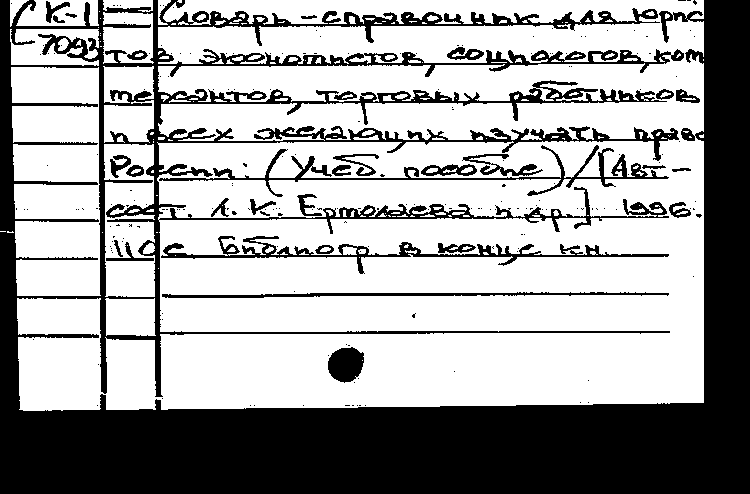 К-1 Словарь-справочник для юрис
7093 тов, экономистов, социологов, ком
мерсантов, торговых работников
и всех желающих изучать право
России: (Учеб. пособие) / [Авт-
сост. Л. К. Ермолаева и др.]. 1996.
110с Библиогр. в конце кн.